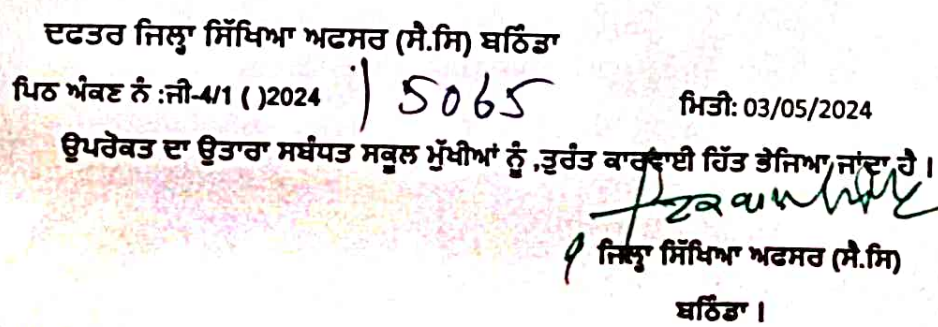 ਦਫਤਰ ਜਿਲ੍ਹਾ ਸਿੱਖਿਆ ਅਫਸਰ (ਸੈ.ਸਿ) ਬਠਿੰਡਾ
ਪਿਠ ਅੰਕਣ ਨੰ :ਜੀ-4/1 ( )2024 / 5065 ਮਿਤੀ: 03/05/2024
ਉਪਰੋਕਤ ਦਾ ਉਤਾਰਾ ਸਬੰਧਤ ਸਕੂਲ ਮੁੱਖੀਆਂ ਨੂੰ ,ਤੁਰੰਤ ਕਾਰਵਾਈ ਹਿੱਤ ਭੇਜਿਆ ਜਾਂਦਾ ਹੈ ।
ਜਿਲ੍ਹਾ ਸਿੱਖਿਆ ਅਫਸਰ (ਸੈ.ਸਿ)
ਬਠਿੰਡਾ ।